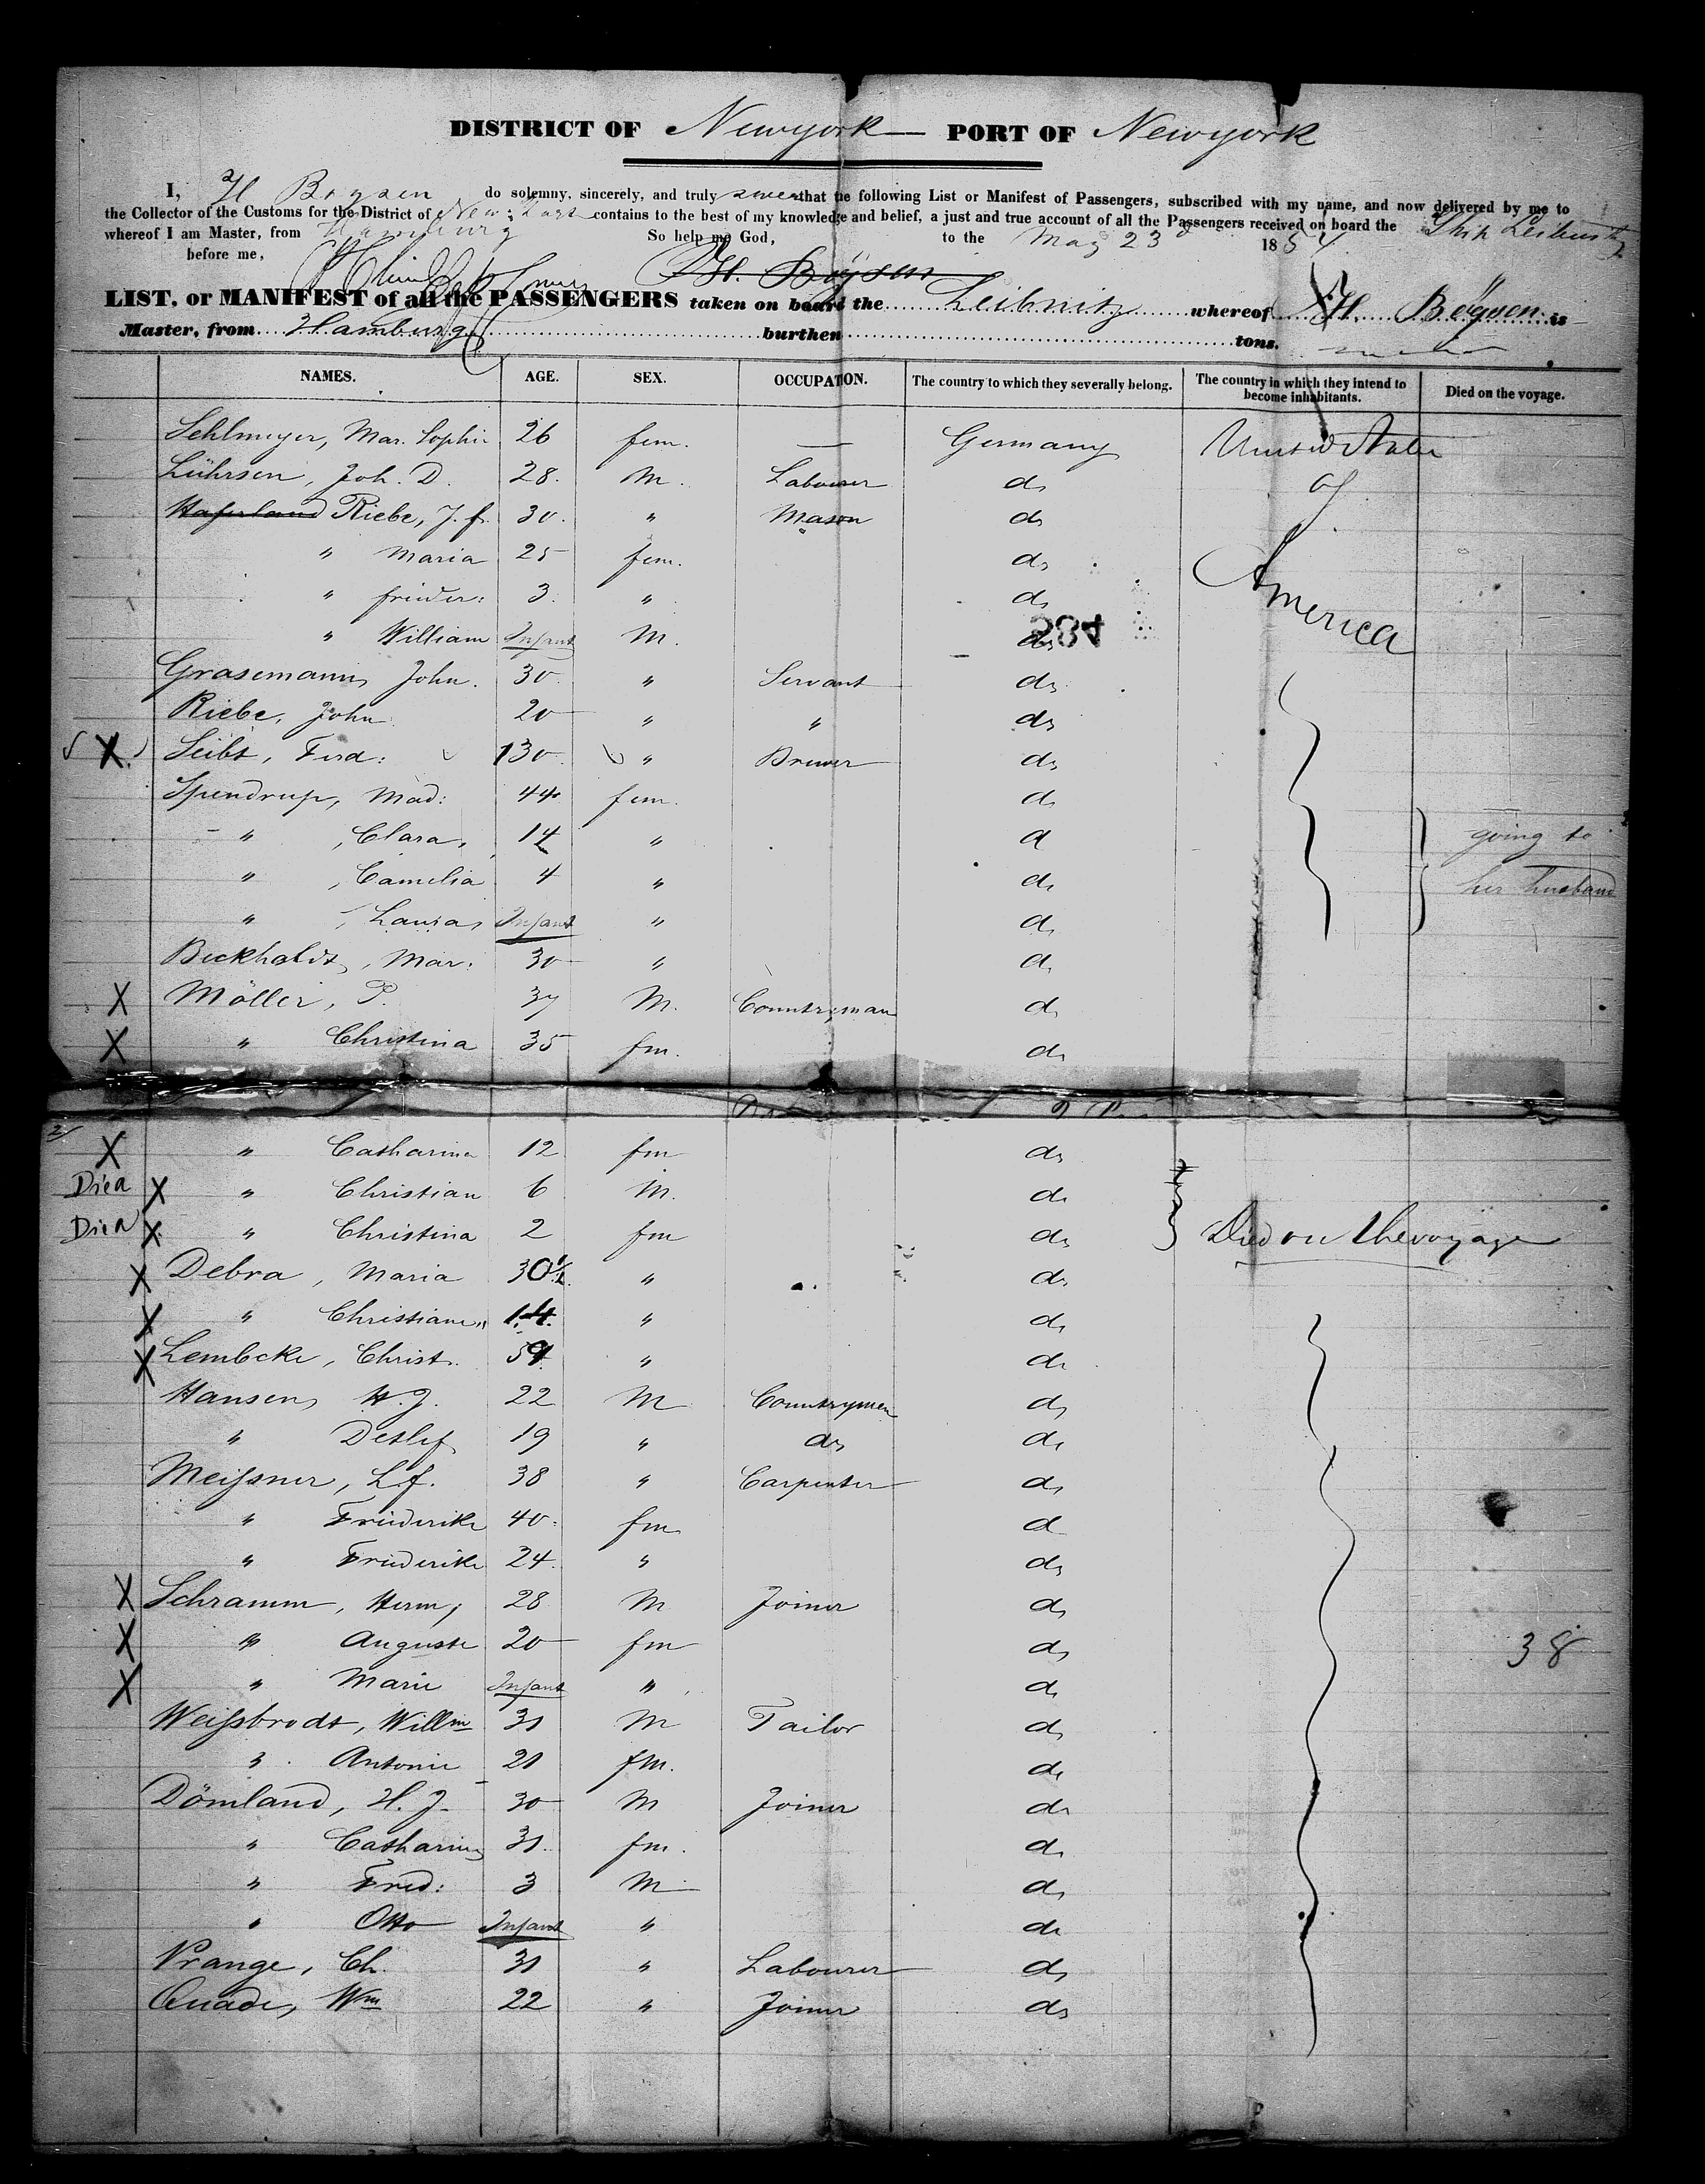 DISTRICT OF Newyork PORT OF Newyork
I, H Boysen do solemny, sincerely, and truly swear that the following List or Manifest of Passengers, subscribed with my name, and now delivered by me to
the Collector of the Customs for the District of New-York contains to the best of my knowledge and belief, a just and true account of all the Passengers received on board the Ship Leibnitz
whereof I am Master, from Hamburg So help me God, to the May 23d 1854
before me, H. Boysen
LIST. or MANIFEST of all the PASSENGERS taken on board the Leibnitz whereof H. Boysen is
Master, from Hamburg burthen tons.
NAMES. AGE. SEX. OCCUPATION. The country to which they severally belong. The country in which they intend to become inhabitants. Died on the voyage.
Sehlmeyer, Mar. Sophi 26 fem. — Germany United States
Lührsen, Joh. D. 28. M. Labourer do of
Haferland Riebe, J. f. 30. " Mason do
" Maria 25 fem. do America
" frieder: 3. " do
" William Infant M. do 584
Grasemann, John. 30. " Servant do
Riebe, John 20 " " do
X Seibt, Ferd: 30 " Brewer do
Spundrup, Mad: 44 fem. do
" , Clara, 14 " do going to
" , Camelia 4 " do her husband
" , Laura, Infant " do
Beckholdt, Mar: 30 " do
X Möller, P. 37 M. Countryman do
X " Christina 35 fm. do
X " Catharina 12 fm do
Died X " Christian 6 M. do
Died X " Christina 2 fm do Died on the voyage
X Debra, Maria 30½ " do
X " Christiane 14. " do
X Lembcke, Christ. 59 " do
Hansen, H. J. 22 M Countrymen do
" Detlef 19 " do do
Meißner, L. f. 38 " Carpenter do
" Friederike 40. fm do
" Friederike 24. " do
X Schramm, Herm; 28 M Joiner do
X " Auguste 20 fm do 38
X " Marie Infant " do
Weißbrodt, Willm 31 M Tailor do
" Antonie 21 fm. do
Dömland, H. J. 30 M Joiner do
" Catharina 31. fm. do
" Fred: 3 M do
" Otto Infant " do
Prange, Ch. 31 " Labourer do
Quade, Wm 22 " Joiner do